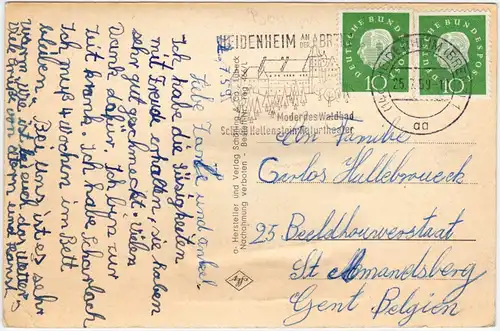 HEIDENHEIM AN DER BRENZ
Modernes Waldbad
Schloss Hellenstein Naturtheater
HEIDENHEIM (BRENZ) 1
25.7.59
aa
DEUTSCHE BUNDESPOST
10
DEUTSCHE BUNDESPOST
10
Liebe Tante und Onkel
Ich habe die Süsigkeiten
mit Freude erhalten, sie haben
sehr gut geschmeckt. Vielen
Dank dafür. Ich bin zur
zeit krank. Ich habe Scharlach
Ich muß 4 Wochen im Bett
bleiben. Bei uns ist es sehr
warm wie ist bei euch das Wetter
Viele Grüße von
An Familie
Carlos Hullebroueck
25 Beeldhouwerstaat
St Amandsberg
Gent Belgien
Hersteller und Verlag Schöning & Co., Lübeck
Nachahmung verboten